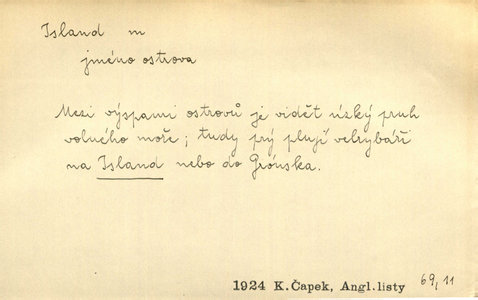 Island m
jméno ostrova
Mezi výspami ostrovů je vidět úzký pruh
volného moře; tudy prý plují velrybáři
na Island nebo do Grónska.
1924 K.Čapek, Angl.listy 69,11